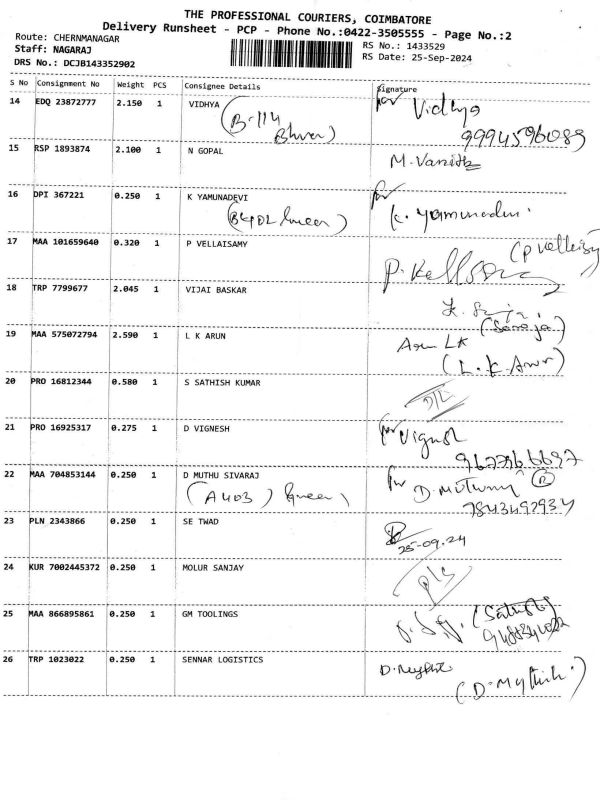 THE PROFESSIONAL COURIERS, COIMBATORE
Delivery Runsheet - PCP - Phone No.:0422-3505555 - Page No.:2
Route: CHERNMANAGAR
Staff: NAGARAJ
DRS No.: DCJB143352902
RS No.: 1433529
RS Date: 25-Sep-2024
S No Consignment No Weight PCS Consignee Details Signature
14 EDQ 23872777 2.150 1 VIDHYA for Vidhya
(B-114
9994596089
15 RSP 1893874 2.100 1 N GOPAL M. Vanitha
16 DPI 367221 0.250 1 K YAMUNADEVI for K. Yamunadevi
17 MAA 101659640 0.320 1 P VELLAISAMY (P Vellaisy
18 TRP 7799677 2.045 1 VIJAI BASKAR
(Saroja)
19 MAA 575072794 2.590 1 L K ARUN Arun LK
(L. K Arun)
20 PRO 16812344 0.580 1 S SATHISH KUMAR
21 PRO 16925317 0.275 1 D VIGNESH for Vignesh
22 MAA 704853144 0.250 1 D MUTHU SIVARAJ for D. Muthu
(A403)
7843492934
23 PLN 2343866 0.250 1 SE TWAD
25-09.24
24 KUR 7002445372 0.250 1 MOLUR SANJAY
25 MAA 866895861 0.250 1 GM TOOLINGS
26 TRP 1023022 0.250 1 SENNAR LOGISTICS